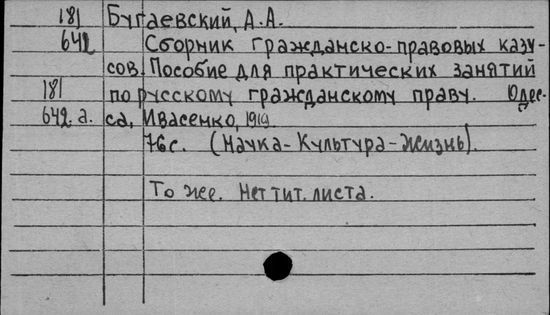 181 Бугаевский, А.А.
642 Сборник гражданско-правовых казу-
сов. Пособие для практических занятий
181 по русскому гражданскому праву. Одес-
642.а. са, Ивасенко, 1919
76с. (Наука-Культура-Жизнь).
То же. Нет тит. листа.